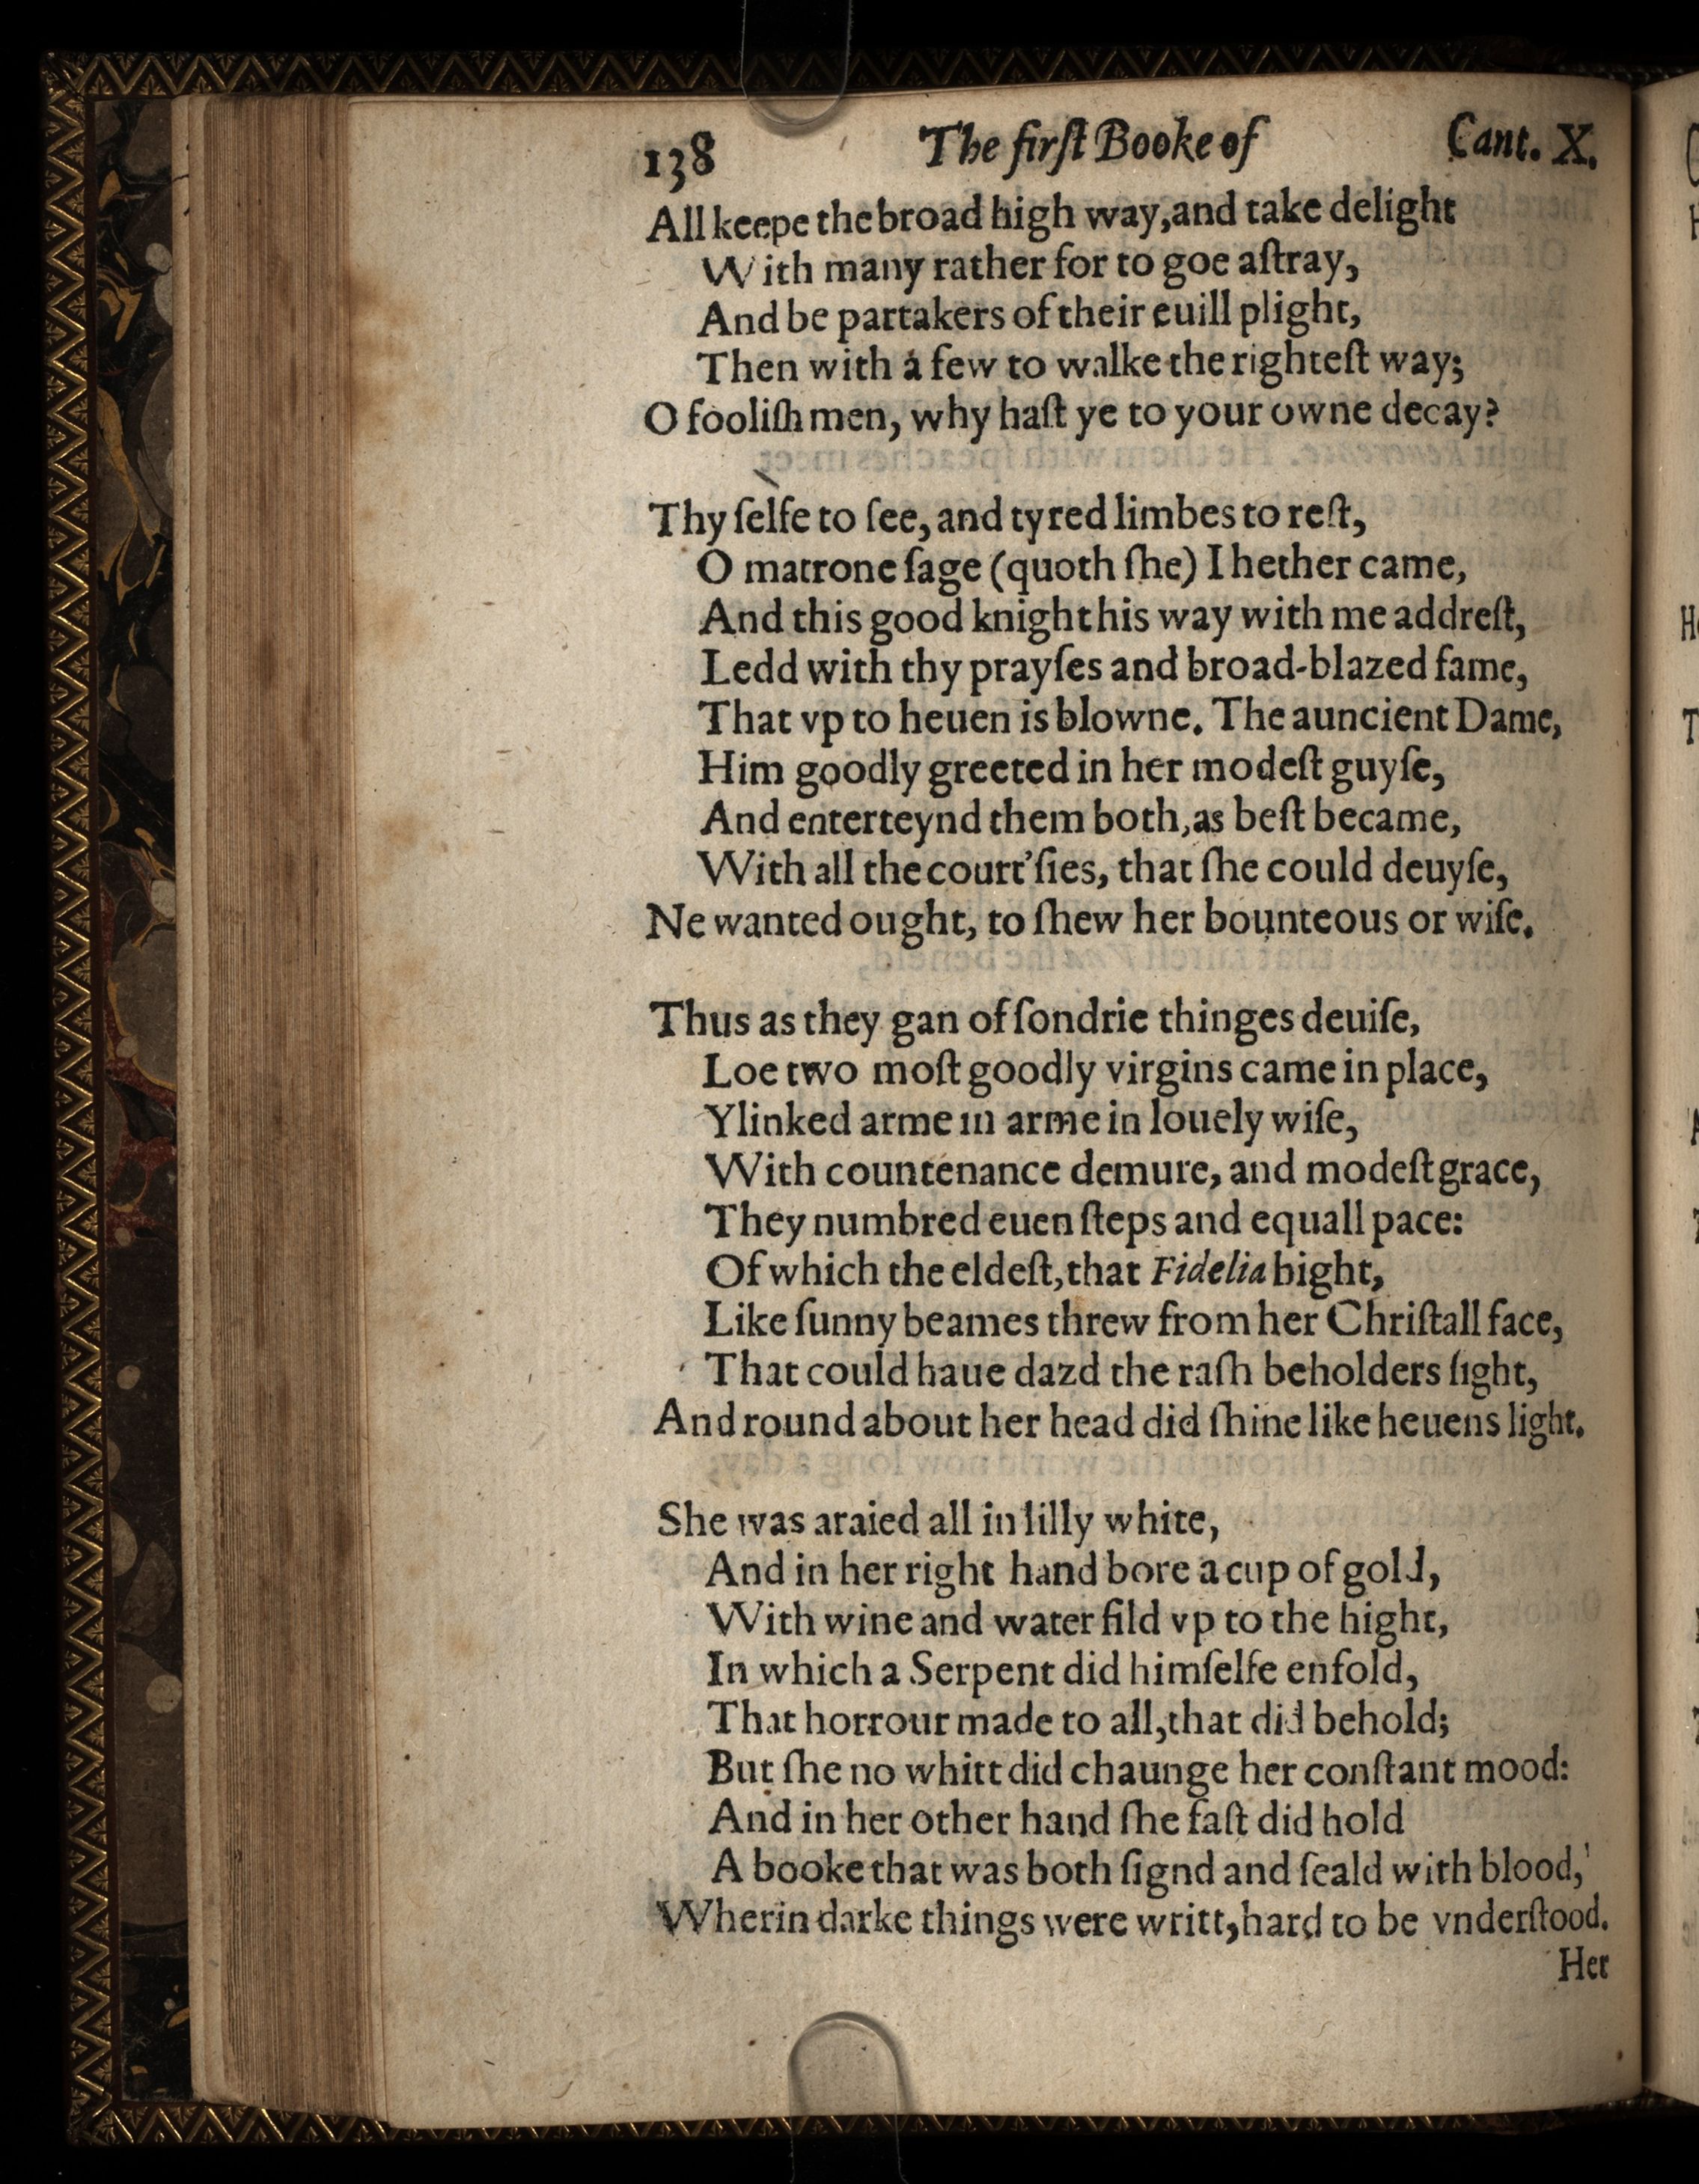 138 The firſt Booke of Cant. X.
All keepe the broad high way, and take delight
With many rather for to goe aſtray,
And be partakers of their euill plight,
Then with a few to walke the righteſt way;
O fooliſh men, why haſt ye to your owne decay?
Thy ſelfe to ſee, and tyred limbes to reſt,
O matrone ſage (quoth ſhe) I hether came,
And this good knight his way with me addreſt,
Ledd with thy prayſes and broad-blazed fame,
That vp to heuen is blowne. The auncient Dame,
Him goodly greeted in her modeſt guyſe,
And enterteynd them both, as beſt became,
With all the court'ſies, that ſhe could deuyſe,
Ne wanted ought, to ſhew her bounteous or wiſe.
Thus as they gan of ſondrie thinges deuiſe,
Loe two moſt goodly virgins came in place,
Ylinked arme in arme in louely wiſe,
With countenance demure, and modeſt grace,
They numbred euen ſteps and equall pace:
Of which the eldeſt, that Fidelia hight,
Like ſunny beames threw from her Chriſtall face,
That could haue dazd the raſh beholders ſight,
And round about her head did ſhine like heuens light.
She was araied all in lilly white,
And in her right hand bore a cup of gold,
With wine and water fild vp to the hight,
In which a Serpent did himſelfe enfold,
That horrour made to all, that did behold;
But ſhe no whitt did chaunge her conſtant mood:
And in her other hand ſhe faſt did hold
A booke that was both ſignd and ſeald with blood,
Wherin darke things were writt, hard to be vnderſtood.
Her